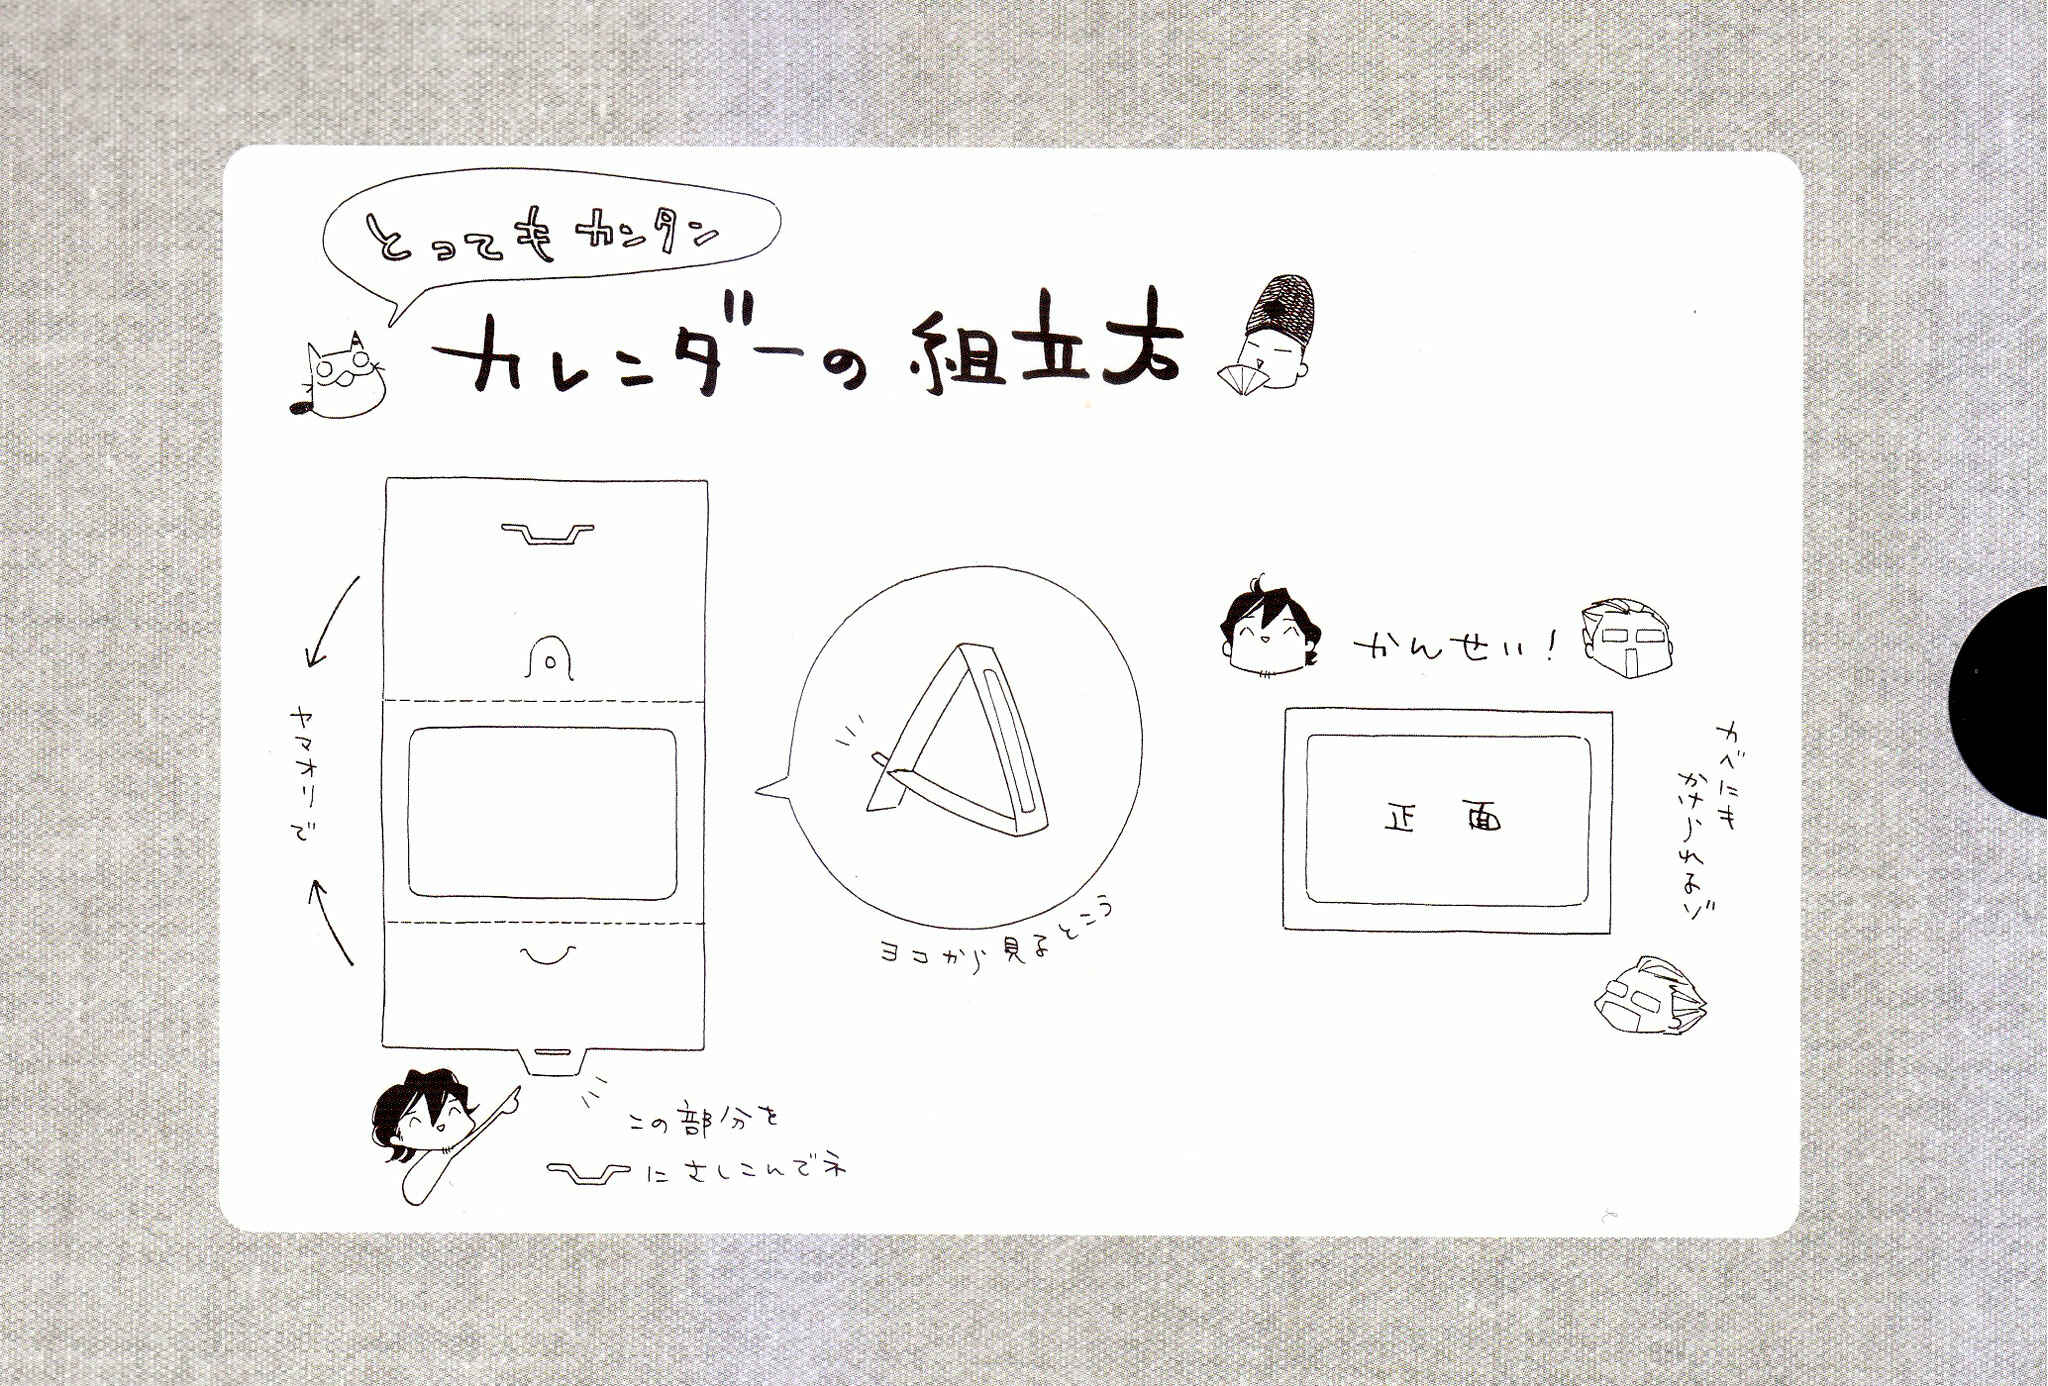 とってもカンタン
カレンダーの組立方
ヤマオリで
ヨコから見るとこう
かんせい!
正面
かべにも
かけられるゾ
この部分を
にさしこんでネ